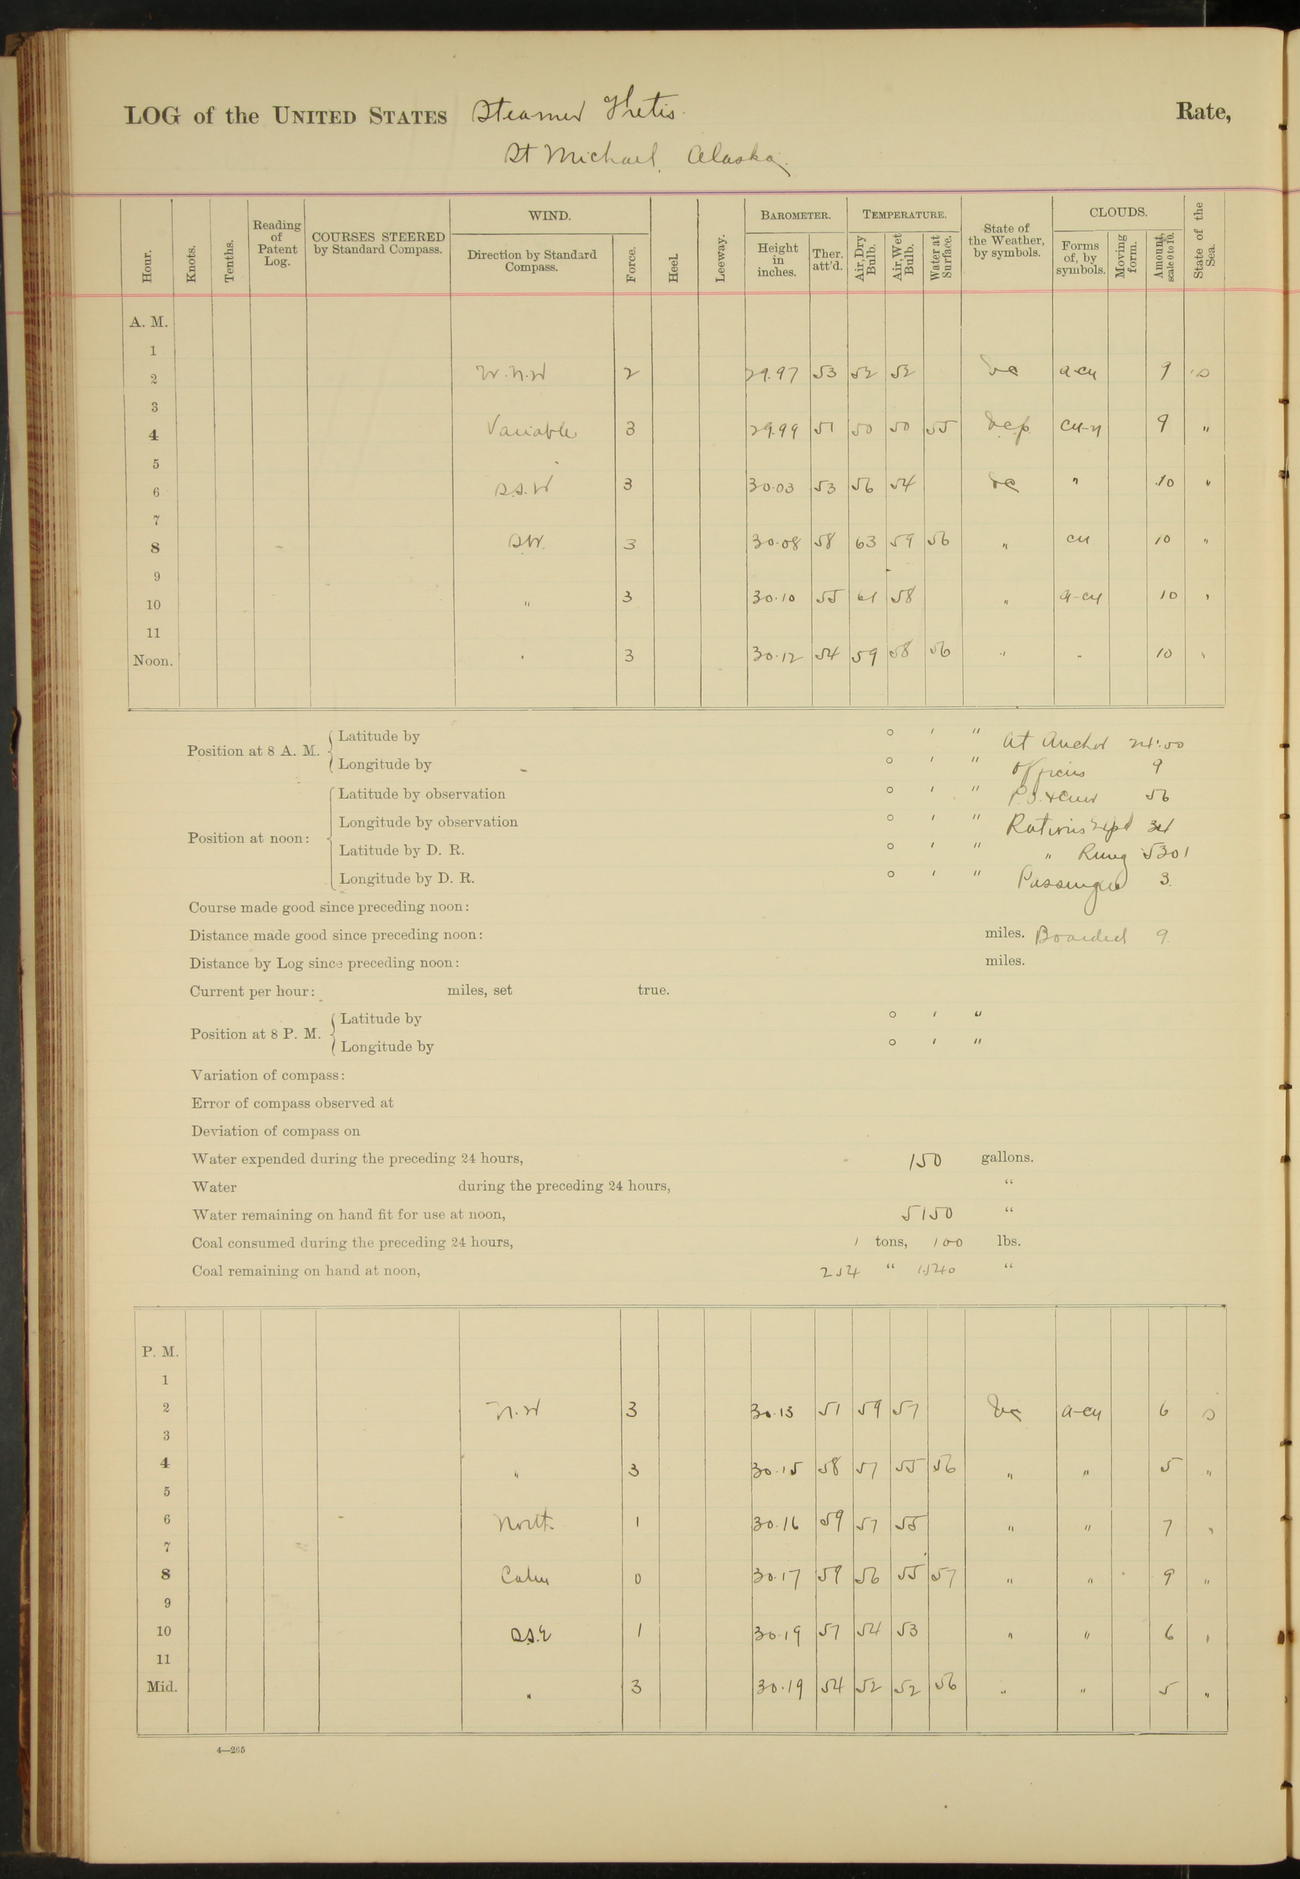 LOG of the UNITED STATES Steamer Thetis. Rate,
St Michael, Alaska.
Hour. Knots. Tenths. Reading of Patent Log. COURSES STEERED by Standard Compass. WIND. Direction by Standard Compass. Force. Heel. Leeway. BAROMETER. Height in inches. Ther. att'd. TEMPERATURE. Air, Dry Bulb. Air, Wet Bulb. Water at Surface. State of the Weather, by symbols. CLOUDS. Forms of, by symbols. Moving form. Amount, scale 0 to 10. State of the Sea.
A. M.
1
2 W.N.W 2 29.97 53 52 52 a-cu 9 S
3
4 Variable 3 29.99 51 50 50 55 cu-n 9 "
5
6 S.S.W 3 30.03 53 56 54 " 10 "
7
8 SW. 3 30.08 58 63 59 56 " cu 10 "
9
10 " 3 30.10 55 61 58 " a-cu 10 "
11
Noon. " 3 30.12 54 59 58 56 " " 10 "
Position at 8 A. M. Latitude by ° ′ ″ At Anchor 24:00
Longitude by ° ′ ″ Officers 9
Position at noon: Latitude by observation ° ′ ″ P.O. & Crew 56
Longitude by observation ° ′ ″ Rations
Latitude by D. R. ° ′ ″ " 5301
Longitude by D. R. ° ′ ″ Passengers 3
Course made good since preceding noon:
Distance made good since preceding noon: miles. Boarded 9
Distance by Log since preceding noon: miles.
Current per hour: miles, set true.
Position at 8 P. M. Latitude by ° ′ ″
Longitude by ° ′ ″
Variation of compass:
Error of compass observed at
Deviation of compass on
Water expended during the preceding 24 hours, 150 gallons.
Water during the preceding 24 hours, "
Water remaining on hand fit for use at noon, 5150 "
Coal consumed during the preceding 24 hours, 1 tons, 100 lbs.
Coal remaining on hand at noon, 254 " 1540 "
P. M.
1
2 N.W 3 30.13 51 59 57 bc a-cu 6 S
3
4 " 3 30.15 58 57 55 56 " " 5 "
5
6 North. 1 30.16 59 57 55 " " 7 "
7
8 Calm 0 30.17 59 56 55 57 " " 9 "
9
10 S.S.E 1 30.19 57 54 53 " " 6 "
11
Mid. " 3 30.19 54 52 52 56 " " 5 "
4—265